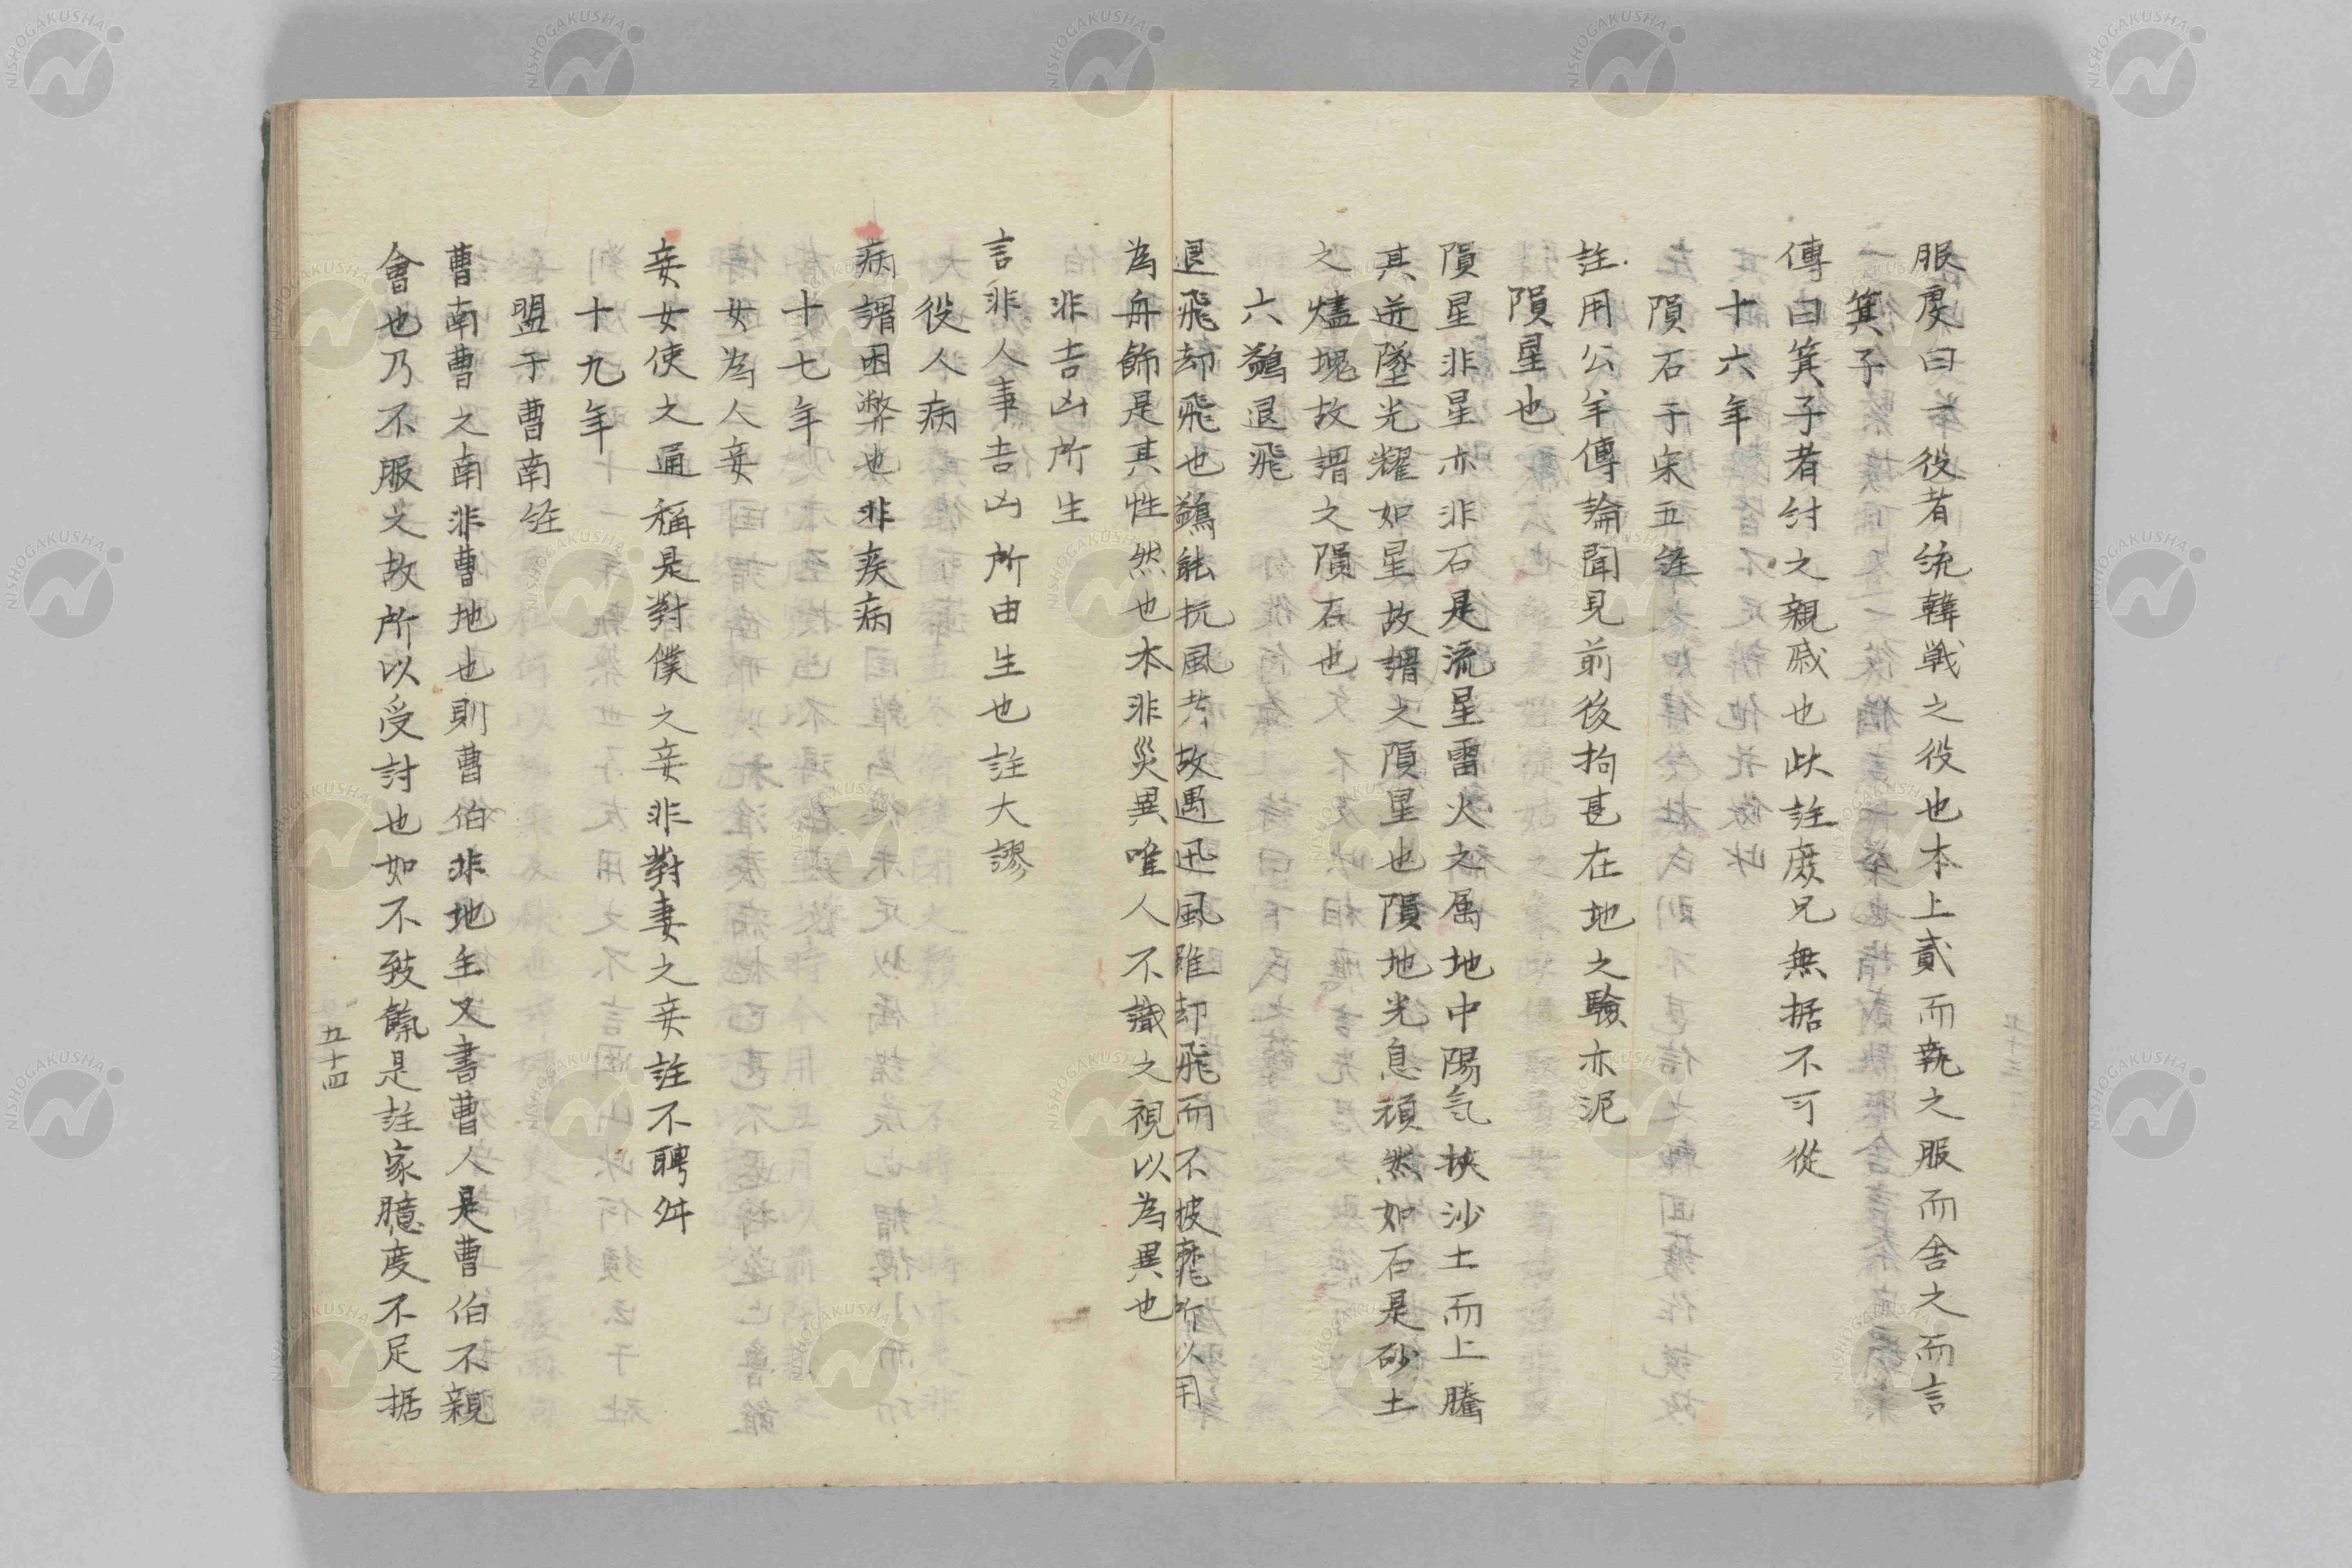 服虔曰一役者統韓戦之役也本上貳而執之服而舎之而言
箕子
傳曰箕子者紂之親戚也此註庶兄無据不可從
十六年
隕石于宋五註
註用公羊傳論聞見前後拘甚在地之驗亦泥
隕星也
隕星非星亦非石是流星雷火之属地中陽気挾沙土而上騰
其迸墜光耀如星故謂之隕星也隕地光息頑然如石是砂土
之燼塊故謂之隕石也
六鷁退飛
退飛却飛也鷁能抗風者故遇迅風雖却飛而不披靡所以用
為舟飾是其性然也本非災異唯人不識之視以為異也
非吉凶所生
言非人事吉凶所由生也註大謬
役人病
病謂困弊也非疾病
十七年
女為人妾
妾女使之通稱是對僕之妾非對妻之妾註不聘舛
十九年
盟于曹南註
曹南曹之南非曹地也則曹伯非地主又書曹人是曹伯不親
會也乃不服之故所以受討也如不致餼是註家臆度不足据
五十四
NISHOGAKUSHA